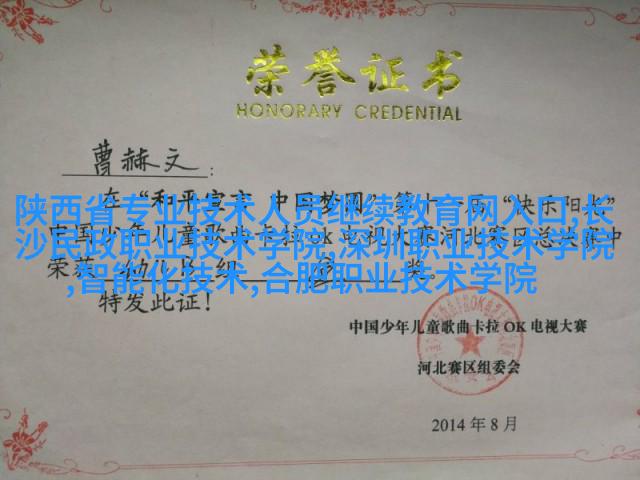 荣誉证书
HONORARY CREDENTIAL
曹赫文：
在“和平宣言 中国梦圆”第十一届“快乐阳光”
陕西省专业技术人员继续教育网入口,长
沙民政职业技术学院,深圳职业技术学院
,智能化技术,合肥职业技术学院
中国少年儿童歌曲卡拉OK电视大赛河北赛区总决赛中
荣获 幼儿B组 奖。
特发此证！
中国少年儿童歌曲卡拉OK电视大赛
河北赛区组委会
2014年8月